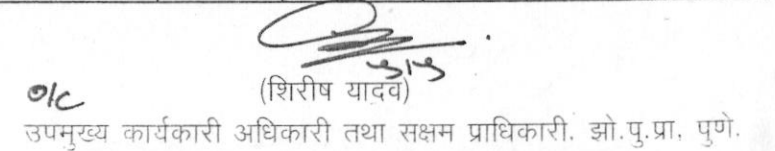 ५/५
o/c (शिरीष यादव)
उपमुख्य कार्यकारी अधिकारी तथा सक्षम प्राधिकारी. झो.पु.प्रा, पुणे.